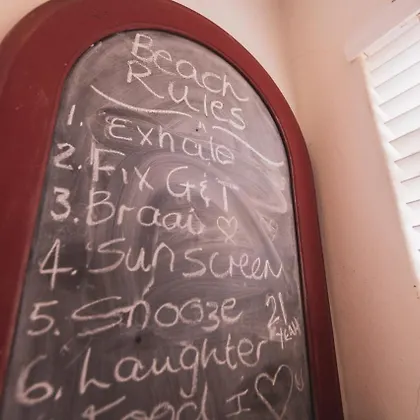 Beach
Rules
1. Exhale
2. Fix G&T
3. Braai ♡
4. Sunscreen
5. Snooze 21
6. Laughter YEAH
I ♡ U